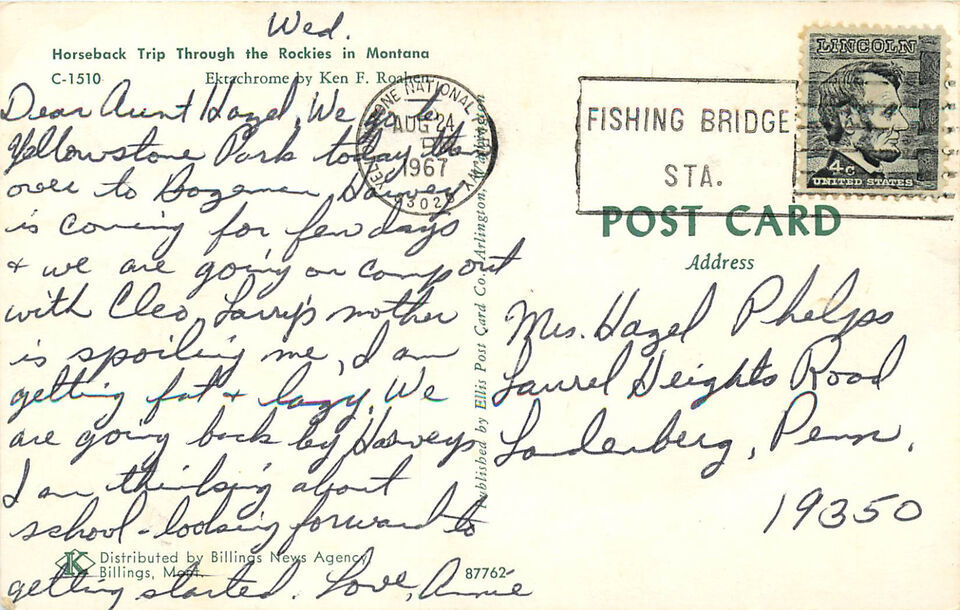 Wed.
Horseback Trip Through the Rockies in Montana
C-1510 Ektachrome by Ken F. Roahen
Dear Aunt Hazel, We go to
Yellowstone Park today then
over to Bozeman. Harvey
is coming for few days
& we are going on camp out
with Cleo. Larry's mother
is spoiling me, I am
getting fat & lazy. We
are going back by Harveys
I am thinking about
school - looking forward to
getting started. Love, Annie
K Distributed by Billings News Agency
Billings, Mont.
87762
Published by Ellis Post Card Co., Arlington, Washington
YELLOWSTONE NATIONAL
AUG 24
PM
1967
83020
FISHING BRIDGE
STA.
LINCOLN
4c
UNITED STATES
POST CARD
Address
Mrs. Hazel Phelps
Laurel Heights Road
Landenberg, Penn.
19350